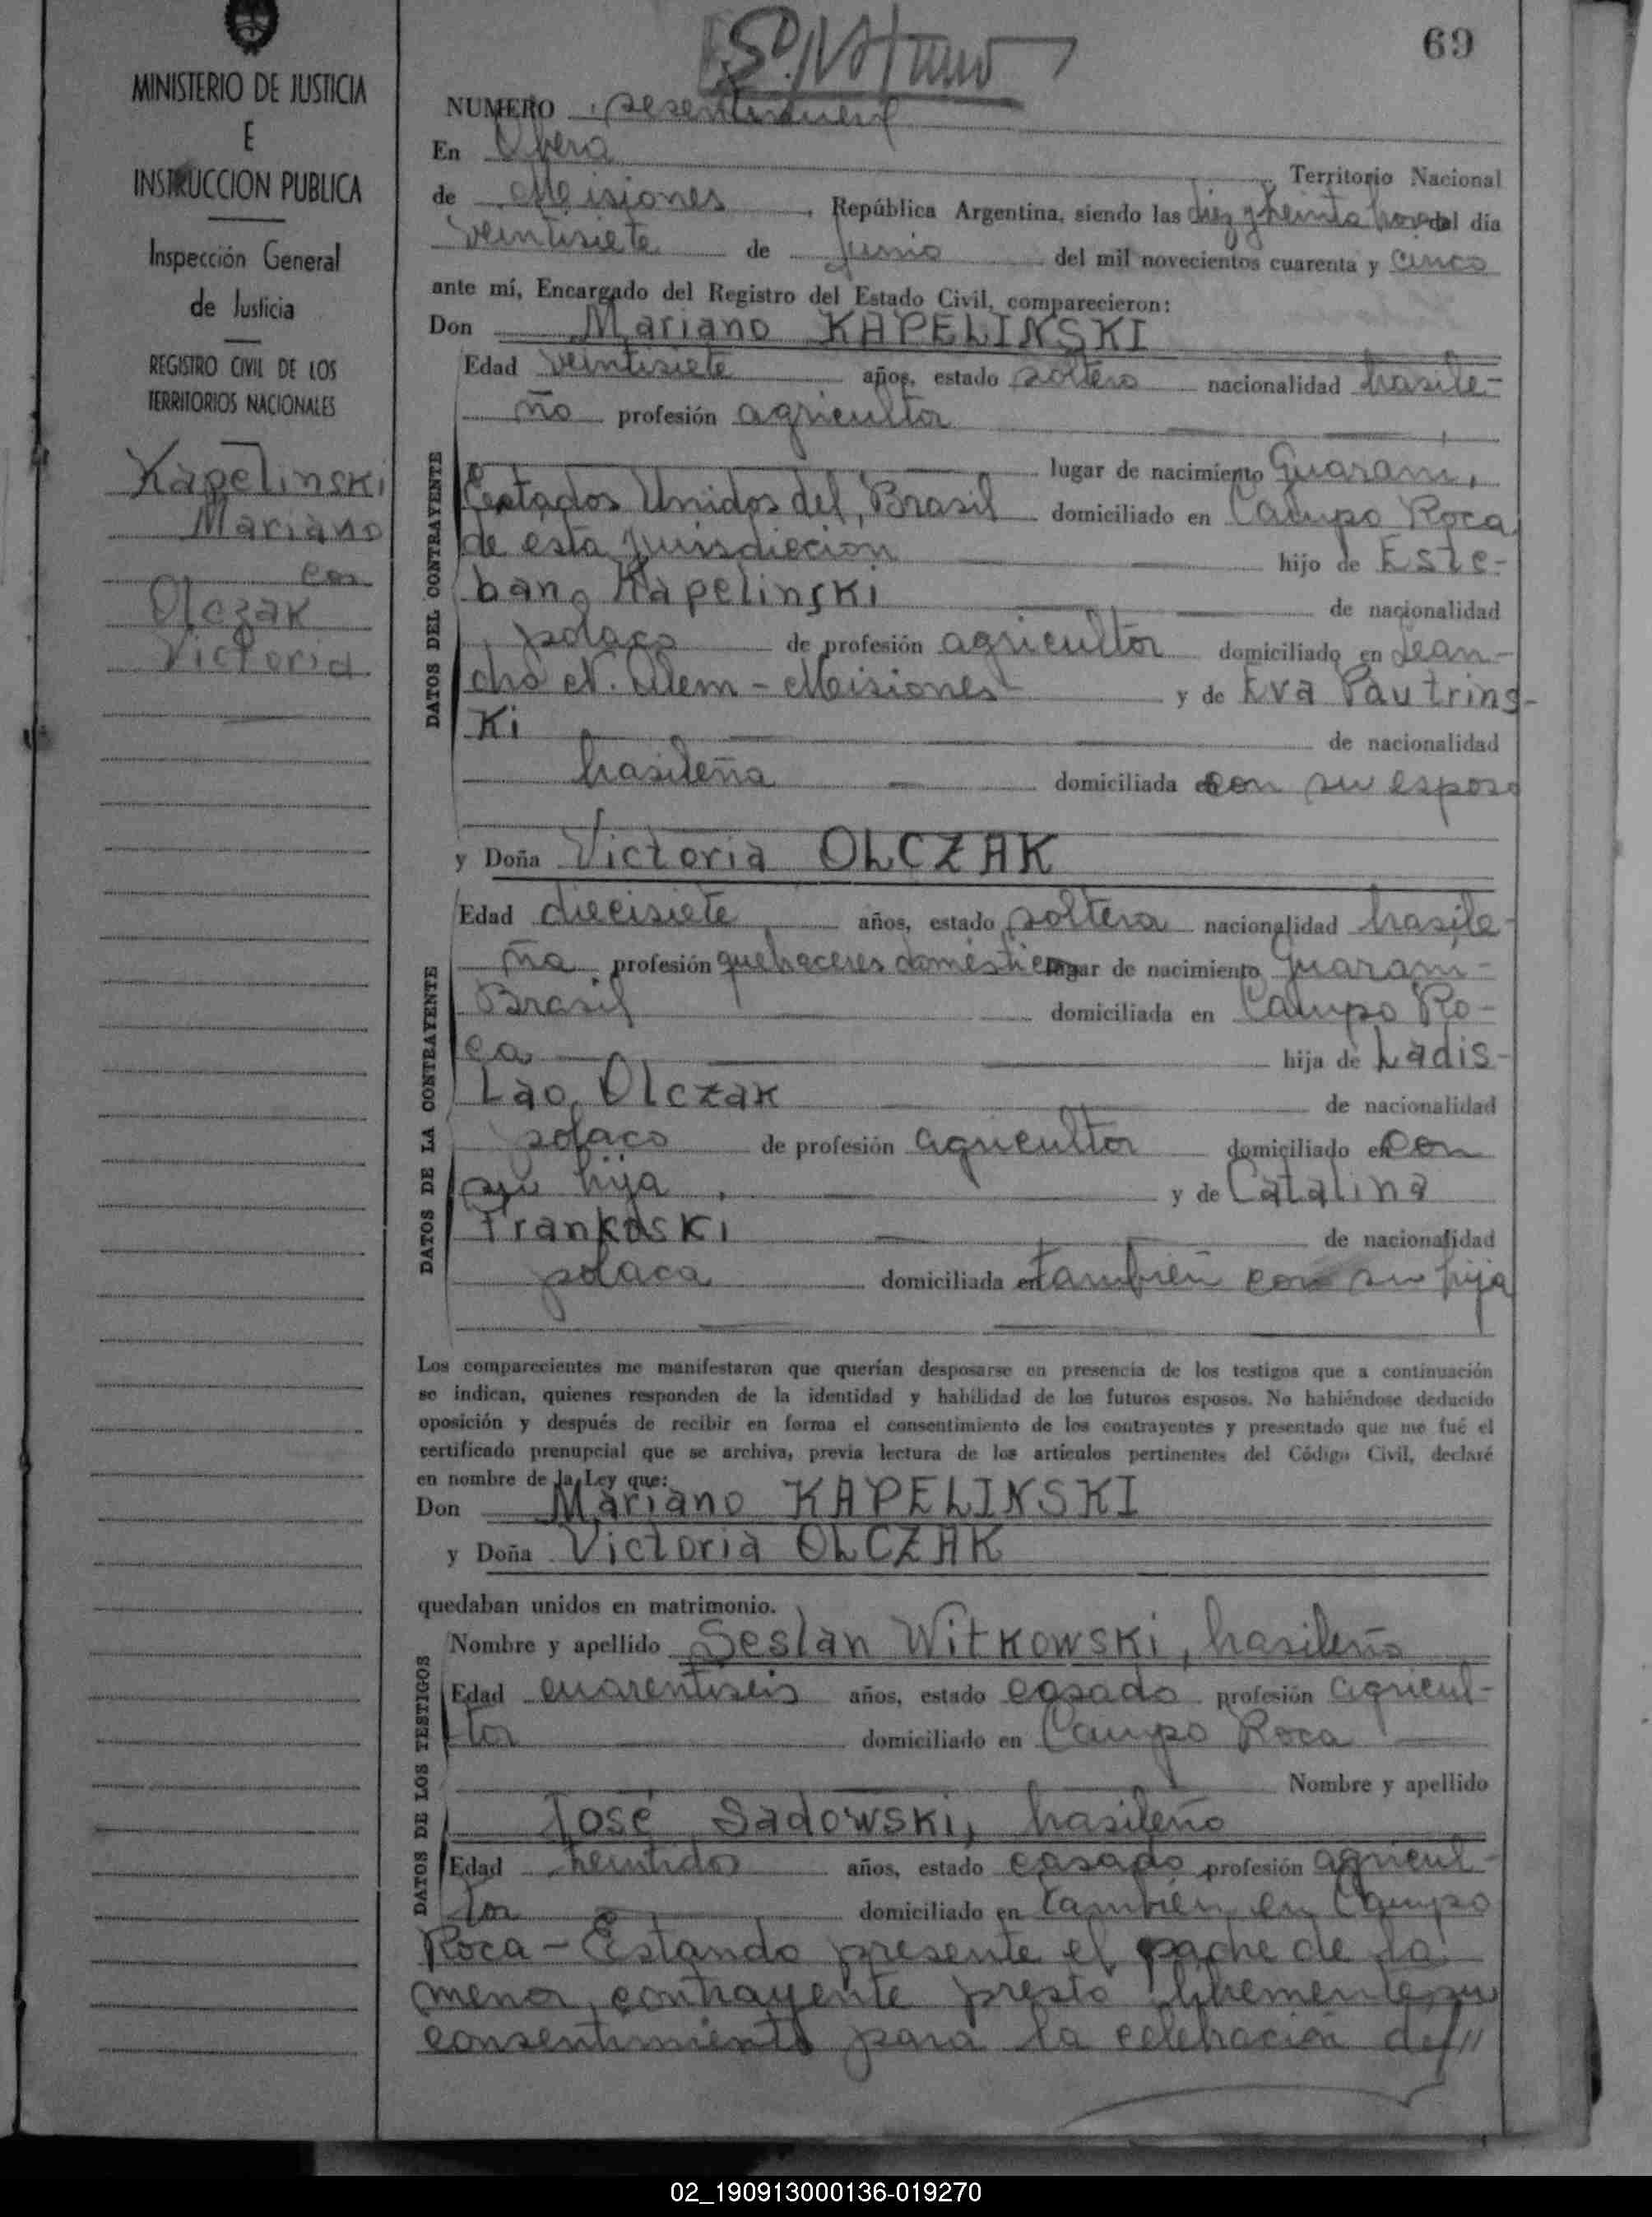 69
MINISTERIO DE JUSTICIA
E
INSTRUCCION PUBLICA
Inspección General
de Justicia
REGISTRO CIVIL DE LOS
TERRITORIOS NACIONALES
Kapelinski
Mariano
con
Olczak
Victoria
NUMERO sesentinueve
En Oberá Territorio Nacional
de Misiones, República Argentina, siendo las diez y treinta horas del día
veintisiete de junio del mil novecientos cuarenta y cinco
ante mí, Encargado del Registro del Estado Civil, comparecieron:
Don Mariano KAPELINSKI
DATOS DEL CONTRAYENTE
Edad veintisiete años, estado soltero nacionalidad brasile-
ño profesión agricultor
lugar de nacimiento Guaraní,
Estados Unidos del Brasil domiciliado en Campo Roca
de esta jurisdiccion hijo de Este-
ban Kapelinski de nacionalidad
polaco de profesión agricultor domiciliado en Lean-
dro N. Alem - Misiones y de Eva Pautrins-
Ki de nacionalidad
brasileña domiciliada en con su esposo
y Doña Victoria OLCZAK
DATOS DE LA CONTRAYENTE
Edad diecisiete años, estado soltera nacionalidad brasile-
ña profesión quehaceres domésticos lugar de nacimiento Guaraní-
Brasil domiciliada en Campo Ro-
ca hija de Ladis-
Lao Olczak de nacionalidad
polaco de profesión agricultor domiciliado en con
su hija, y de Catalina
Frankoski de nacionalidad
polaca domiciliada en también con su hija
Los comparecientes me manifestaron que querían desposarse en presencia de los testigos que a continuación
se indican, quienes responden de la identidad y habilidad de los futuros esposos. No habiéndose deducido
oposición y después de recibir en forma el consentimiento de los contrayentes y presentado que me fué el
certificado prenupcial que se archiva, previa lectura de los artículos pertinentes del Código Civil, declaré
en nombre de la Ley que:
Don Mariano KAPELINSKI
y Doña Victoria OLCZAK
quedaban unidos en matrimonio.
DATOS DE LOS TESTIGOS
Nombre y apellido Seslan Witkowski, brasileño
Edad cuarentiseis años, estado casado profesión agricul-
tor domiciliado en Campo Roca
Nombre y apellido
José Sadowski, brasileño
Edad treintidos años, estado casado profesión agricul-
tor domiciliado en también en Campo
Roca - Estando presente el padre de la
menor contrayente prestó libremente su
consentimiento para la celebración del//
02_190913000136-019270